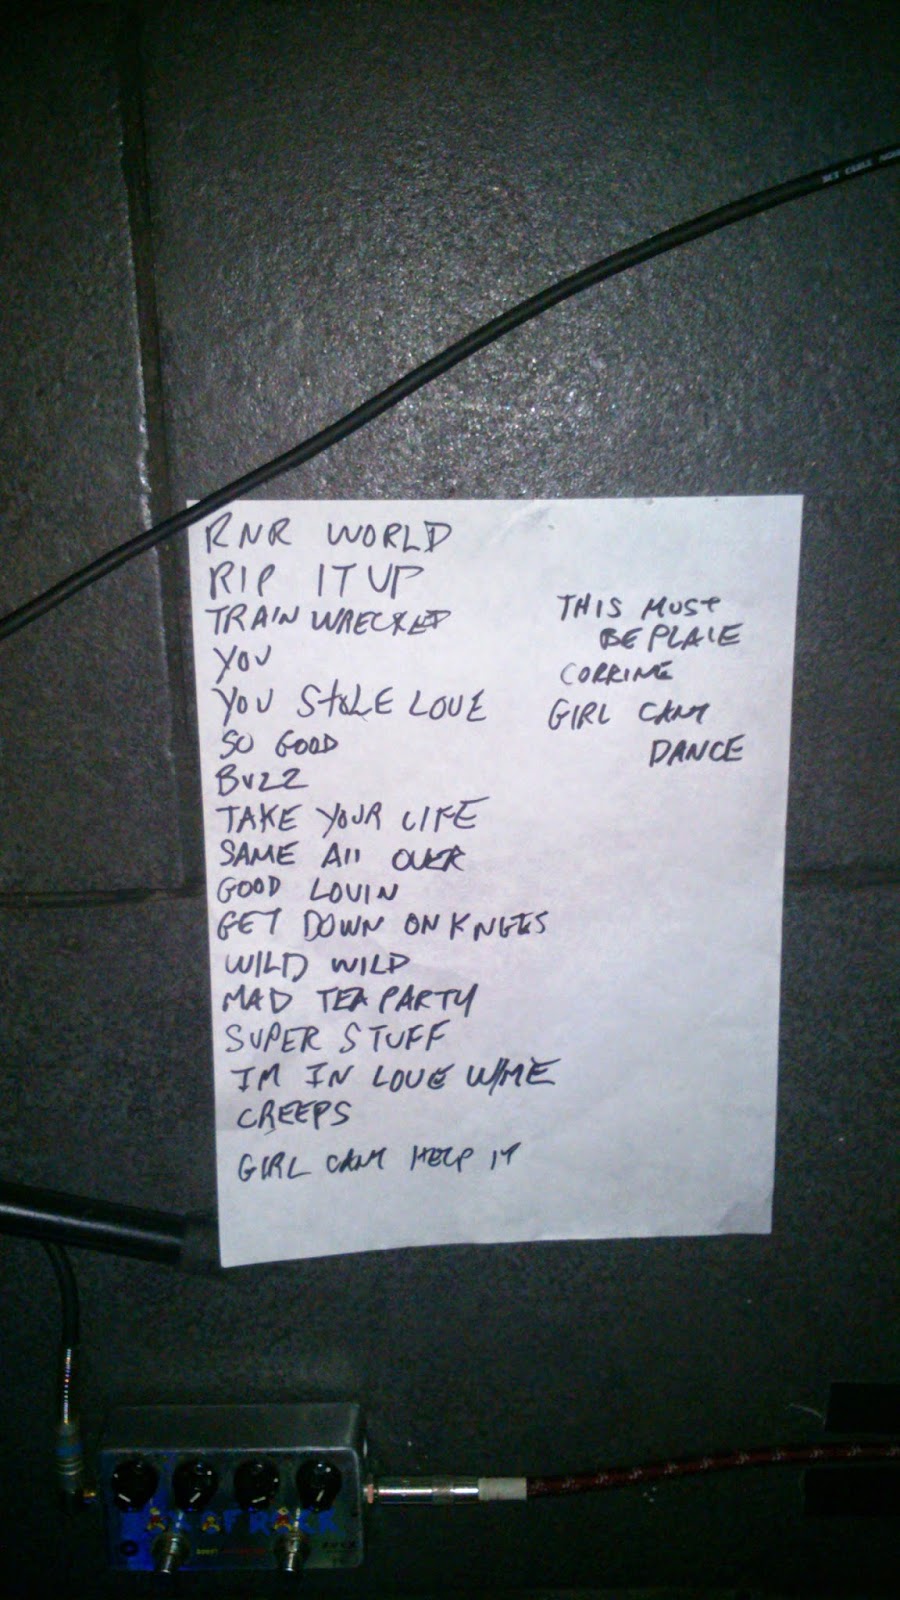 RNR WORLD
RIP IT UP
TRAIN WRECKED
YOU
YOU STOLE LOVE
SO GOOD
BUZZ
TAKE YOUR LIFE
SAME All OVER
GOOD LOVIN
GET DOWN ON KNEES
WILD WILD
MAD TEA PARTY
SUPER STUFF
IM IN LOVE W/ME
CREEPS
GIRL CANT HELP IT
THIS MUST
BE PLACE
CORRINE
GIRL CANT
DANCE
BOX OF ROCK